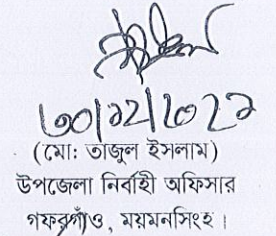 ৩০/১২/২০২১
(মো: তাজুল ইসলাম)
উপজেলা নির্বাহী অফিসার
গফরগাঁও, ময়মনসিংহ।